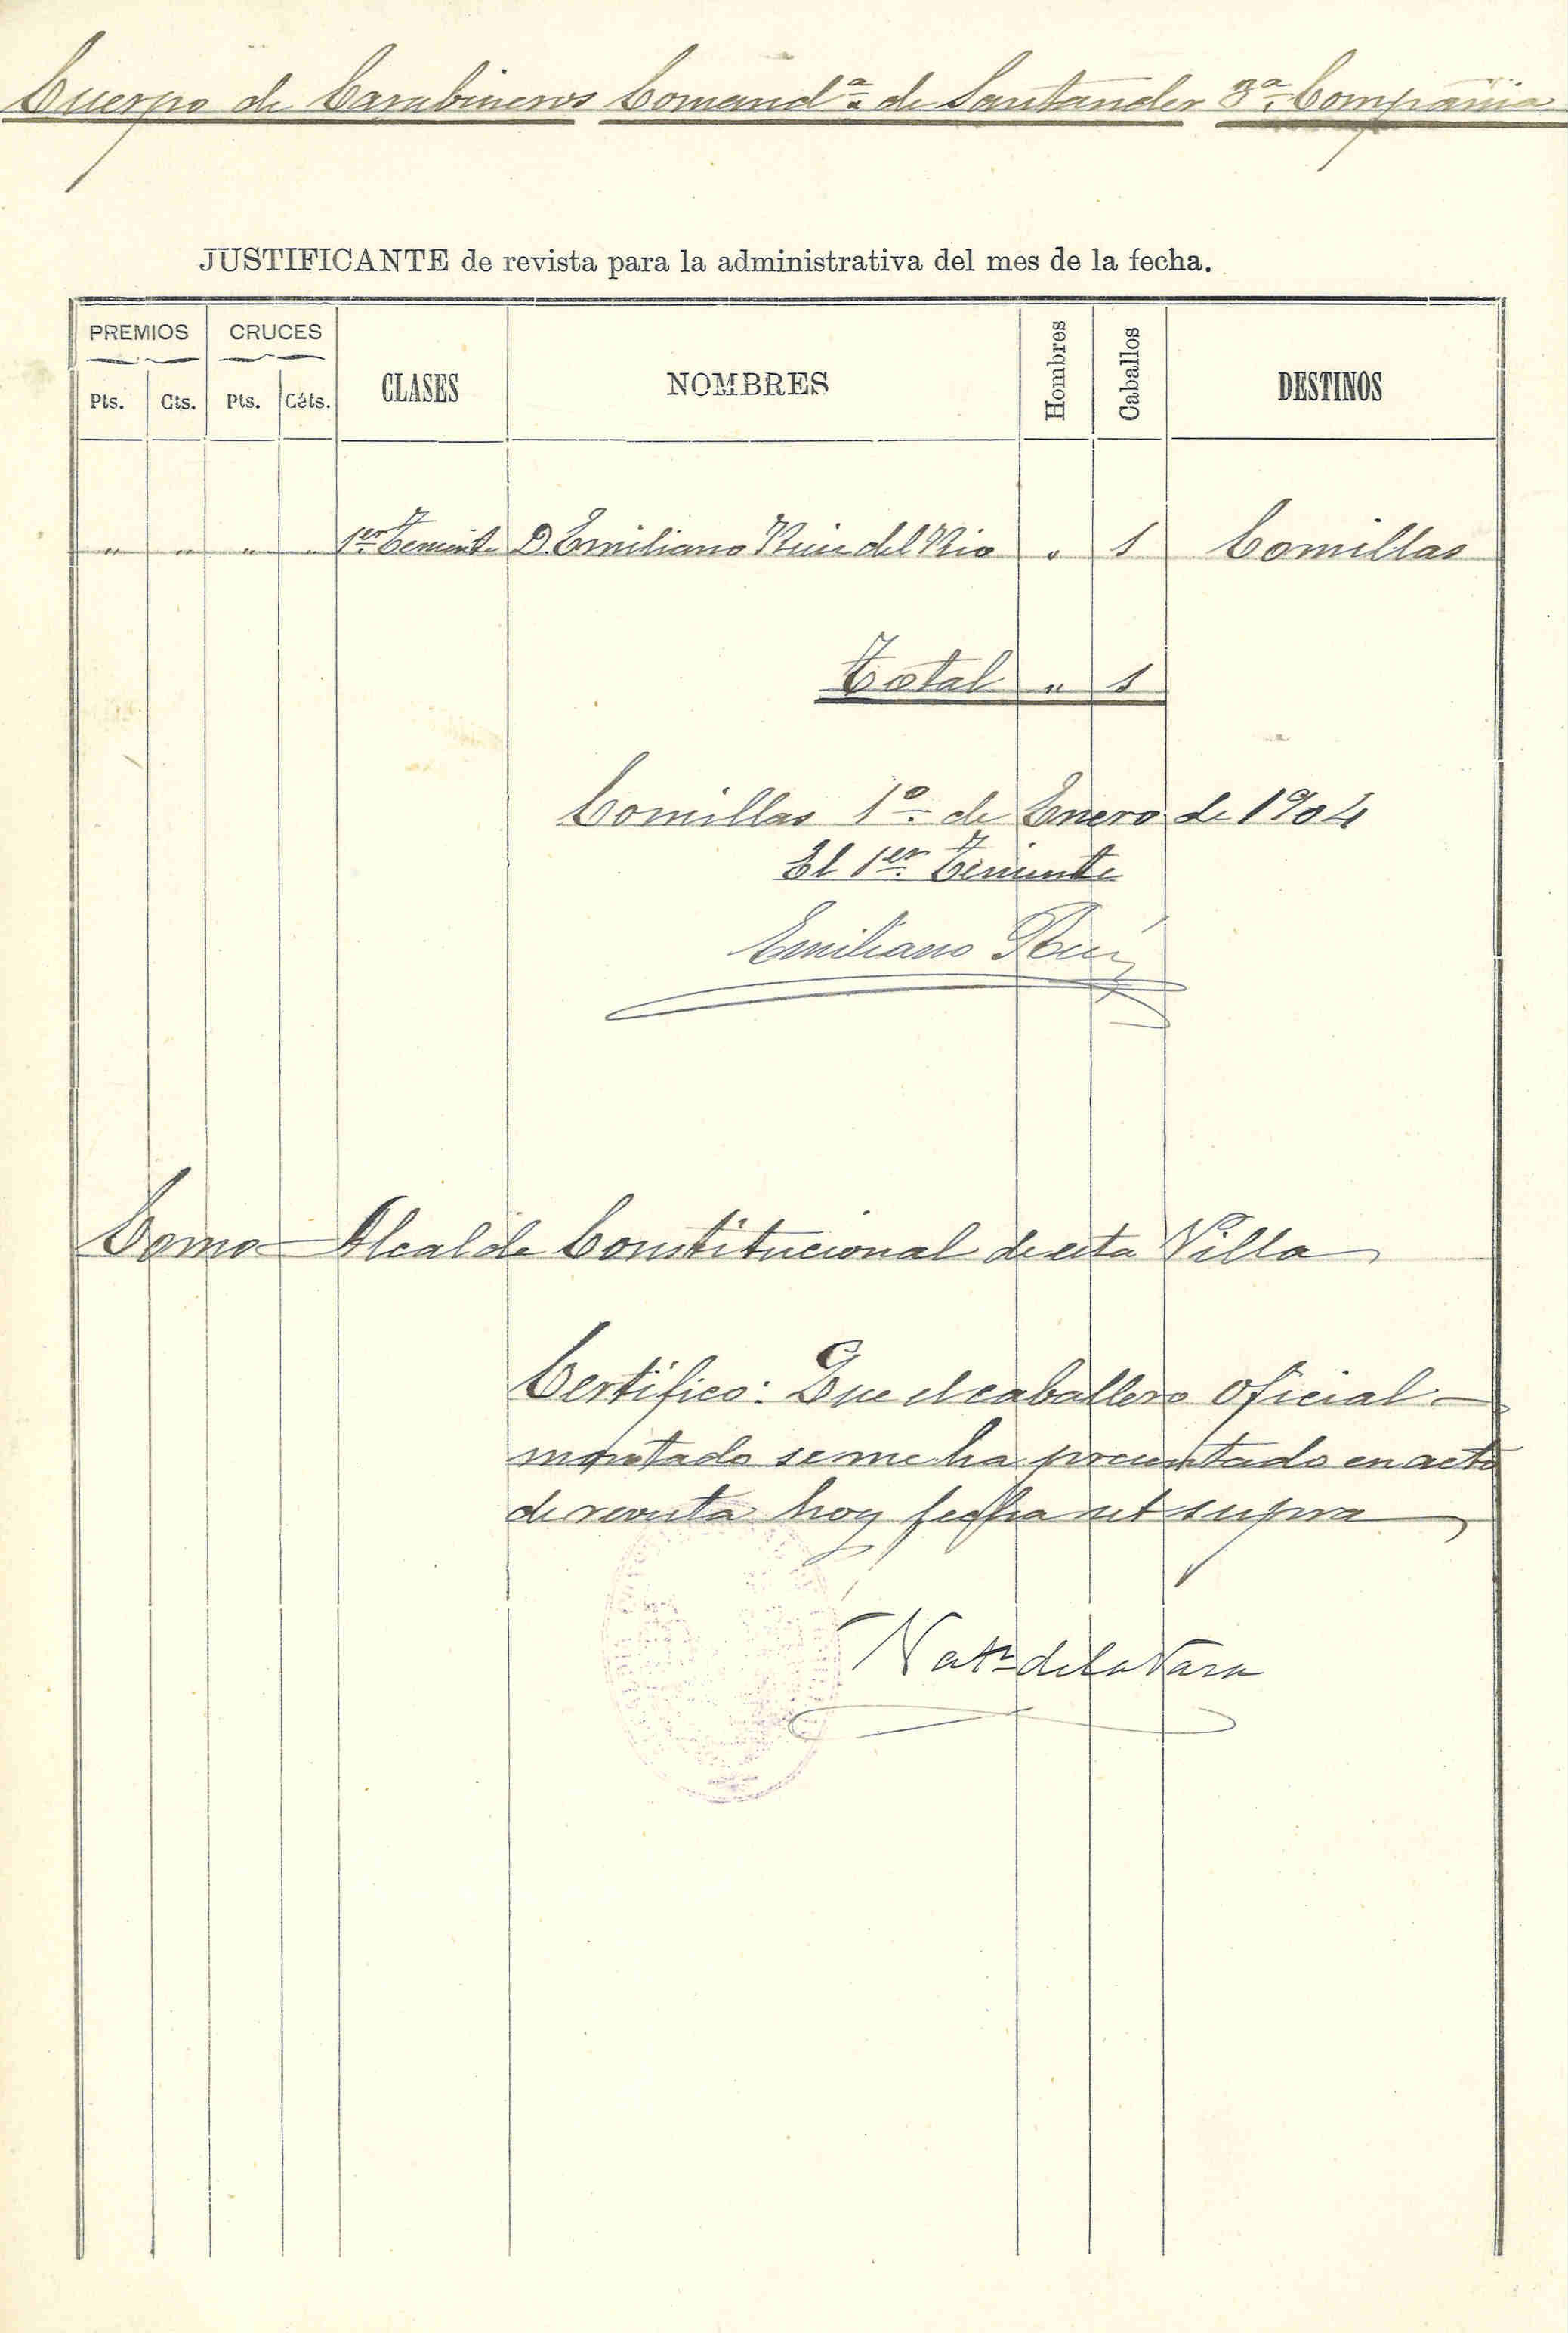 Cuerpo de Carabineros Comandª de Santander 3ª Compañia
JUSTIFICANTE de revista para la administrativa del mes de la fecha.
PREMIOS CRUCES CLASES NOMBRES Hombres Caballos DESTINOS
Pts. Cts. Pts. Céts.
" " " " 1er Teniente D. Emiliano Ruiz del Rio " 1 Comillas
Total " 1
Comillas 1º de Enero de 1904
El 1er Teniente
Emiliano Ruiz
Como Alcalde Constitucional de esta Villa
Certifico: Que el caballero oficial
montado se me ha presentado en acto
de revista hoy fecha ut supra
de la Vara